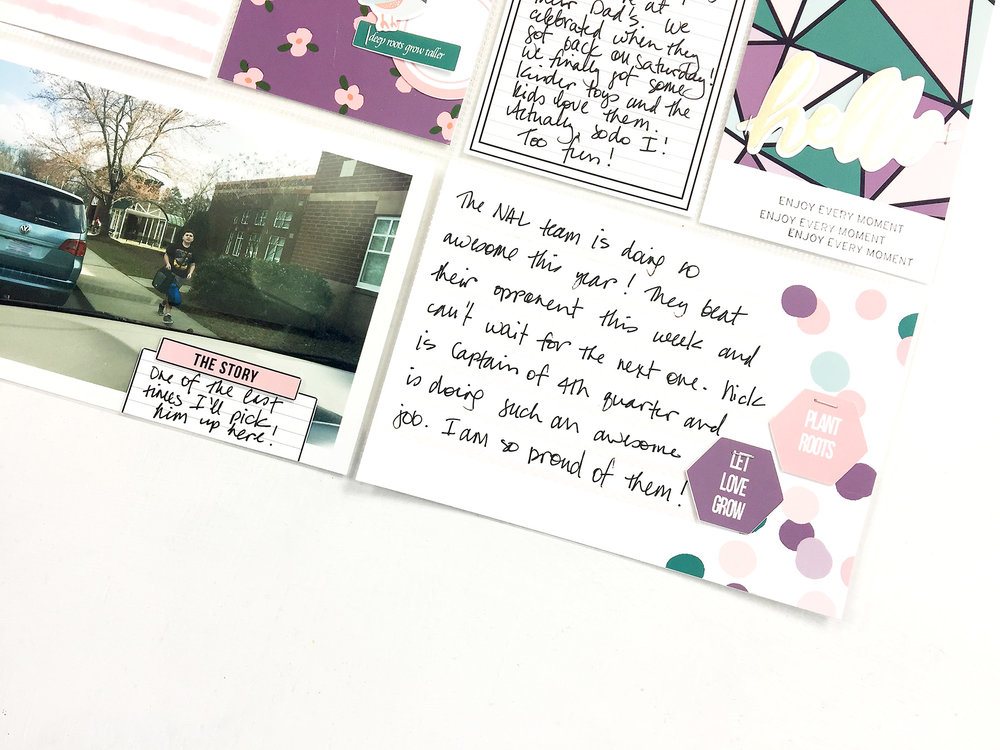 deep roots grow taller
their Dad's. We
celebrated when they
got back on Saturday!
We finally got some
lander toys and the
kids love them.
Actually, so do I!
Too fun!
hello
ENJOY EVERY MOMENT
ENJOY EVERY MOMENT
ENJOY EVERY MOMENT
THE STORY
One of the last
times I'll pick
him up here!
The NAL team is doing so
awesome this year! They beat
their opponent this week and
can't wait for the next one. Nick
is Captain of 4th quarter and
is doing such an awesome
job. I am so proud of them!
PLANT
ROOTS
LET
LOVE
GROW